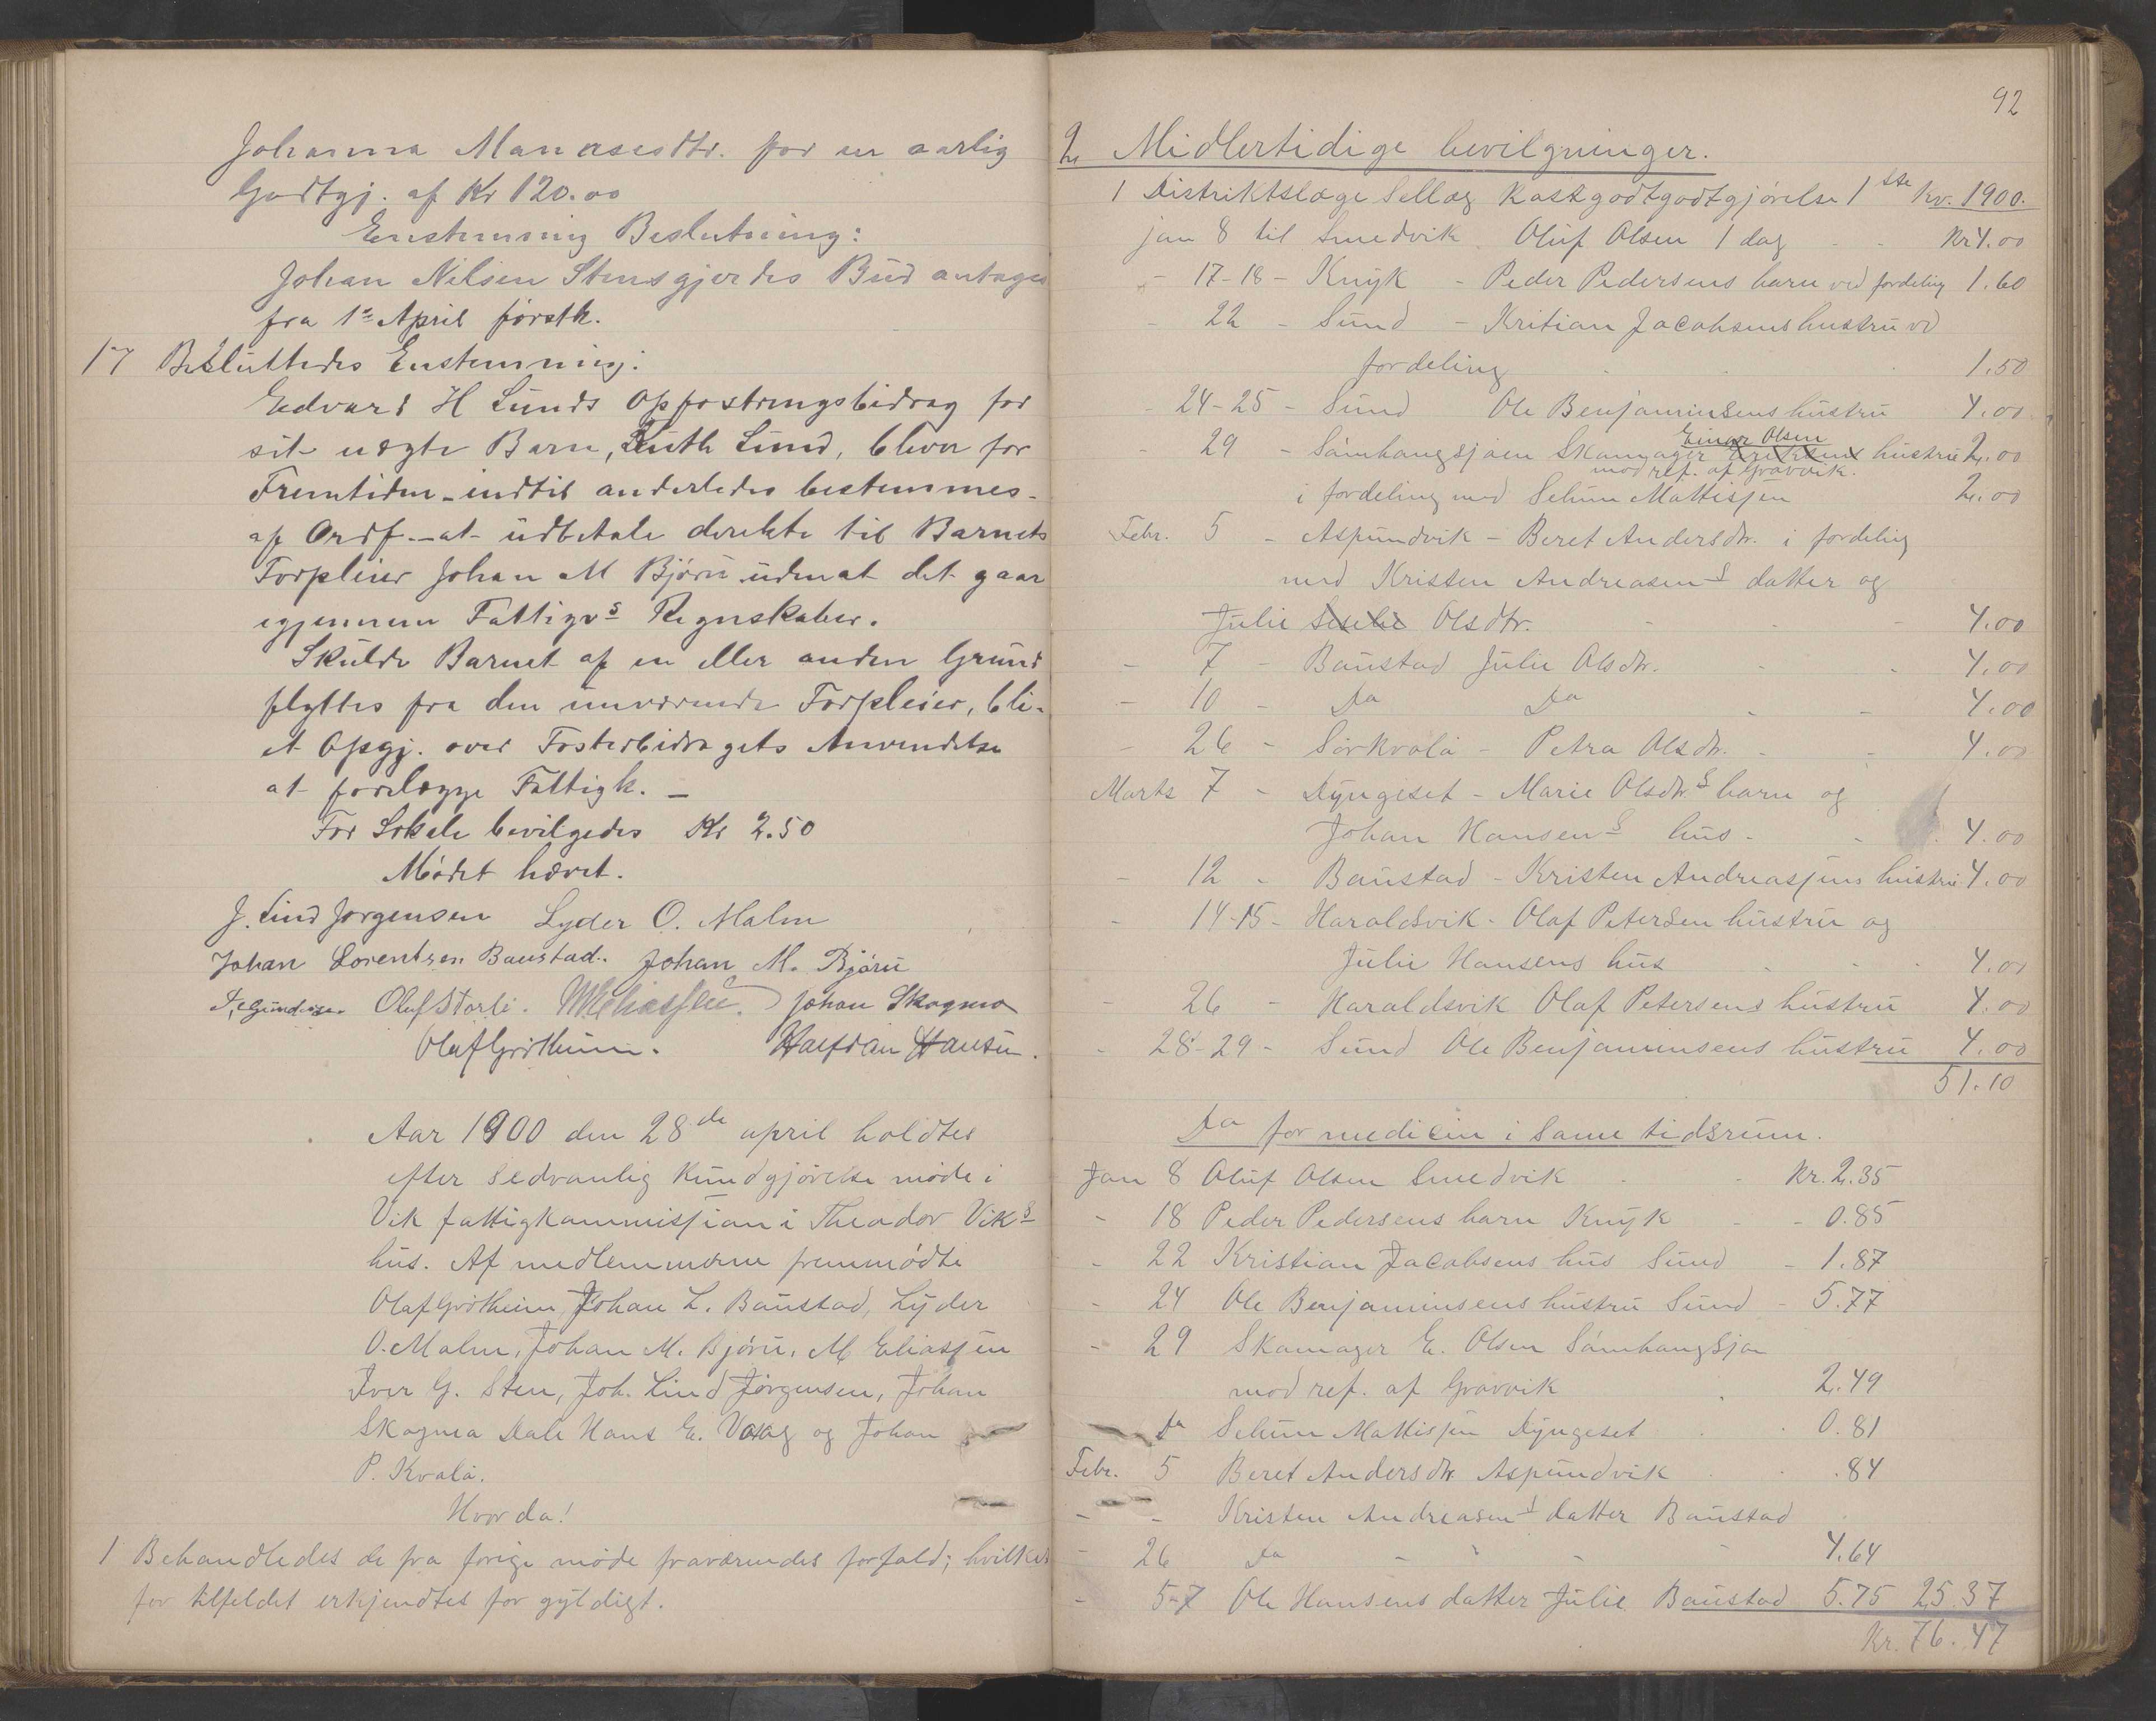 Johanna Manasesdtr. for en aarlig
Godtgj. af Kr 120.00
Enstemmig Beslutning:
Johan Nilsen Stensgjerdes Bud antages
fra 1ste April førstk.
17 Besluttedes Enstemmig:
Edvard H Lunds Opfostringsbidrag for
sit uægte Barn, Ruth Lund, bliver for
Fremtiden - indtil anderledes bestemmes -
af Ordf. - at udbetale direkte til Barnets
Forpleier Johan M Bjørû uden at det gaar
igjennem Fattigvs Regnskaber.
Skulde Barnet af en eller anden Grund
flyttes fra den nuværende Forpleier, bli-
et Opgj. over Fosterbidragets Anvendelse
at forelægge Fattigk. -
For Lokale bevilgedes Kr 2.50
Mødet hævet.
J. Lind Jørgensen Lyder O. Malm
Johan Lorentsen Baustad. Johan M. Bjørû
I. Gundersen Oluf Storli. M Eliassen. Johan Skogmo
Olaf Grøtheim. Halfdan Hansen.
Aar 1900 den 28de april holdtes
efter sedvanlig kundgjørelse møde i
Vik fattigkommissjon i Theodor Viks
hus. Af medlemmerne fremmødte
Olaf Grøtheim, Johan L. Baustad, Lyder
O. Malm, Johan M. Bjørû, M Eliassen
Iver G. Sten, Joh. Lind Jørgensen, Johan
Skogmo Dale Hans E. Vaag og Johan
P. Kvalø.
Hvor da!
1 Behandledes de fra forige møde fraværendes forfald; hvilket
for tilfeldet erkjendtes for gyldigt.
92
2. Midlertidige bevilgninger.
1 Distriktslæge Sellæg kostgodtgodtgjørelse 1ste Kv. 1900.
jan 8 til Smedvik Oluf Olsen 1 dag Kr 4.00
- 17-18 - Knyk - Peder Pedersens barn ved fordeling 1.60
- 22 - Sund - Kritian Jacobsens hustru vd
fordeling 1.50
- 24-25 - Sund Ole Benjaminsens hustru 4.00
Einar Olsen
- 29 - Sømhaugsjøen Skomager hustru 2.00
mod ref. af Gravvik.
i fordeling med Selium Mattissen 2.00
Febr. 5 - Aspundvik - Beret Andersdtr. i fordeling
med Kristen Andreasens datter og
Julie Olsdtr. 4.00
- 7 - Baustad Julie Olsdtr. 4.00
- 10 - Do Do 4.00
- 26 - Sørkvalø - Petra Olsdtr. 4.00
Marts 7 - Dyngeset - Marie Olsdtrs barn og
Johan Hansens hus - 4.00
- 12 - Baustad - Kristen Andreassens hustru 4.00
- 14-15 - Haraldsvik - Olaf Petersen hustru og
Julie Hansens hus 4.00
- 26 - Haraldsvik Olaf Petersens hustru 4.00
- 28-29 - Sund Ole Benjaminsens hustru 4.00
51.10
Do for medicin i same tidsrum.
Jan 8 Oluf Olsen Smedvik - Kr. 2.35
- 18 Peder Pedersens barn Knyk - - 0.85
- 22 Kristian Jacobsens hus Sund - 1.87
- 24 Ole Benjaminsens hustru Sund - 5.77
- 29 Skomager E. Olsen Sømhaugsjø
mod ref. af Gravvik 2.49
Do Selium Mattissen Dyngeset 0.81
Febr. 5 Beret Andersdtr Aspundvik .84
- - Kristen Andreasens datter Baustad
- 26 Do - " - 4.64
- 5-7 Ole Hansens datter Julie Baustad 5.75 25.37
Kr. 76.47